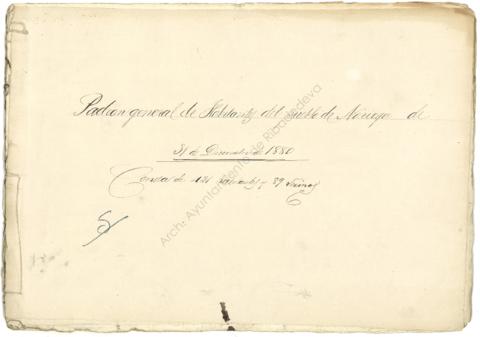 Padron general de Habitantes del Pueblo de Noriega de
31 de Diciembre de 1880
Consta de 121 y 89
Arch. Ayuntamiento de Ribadedeva